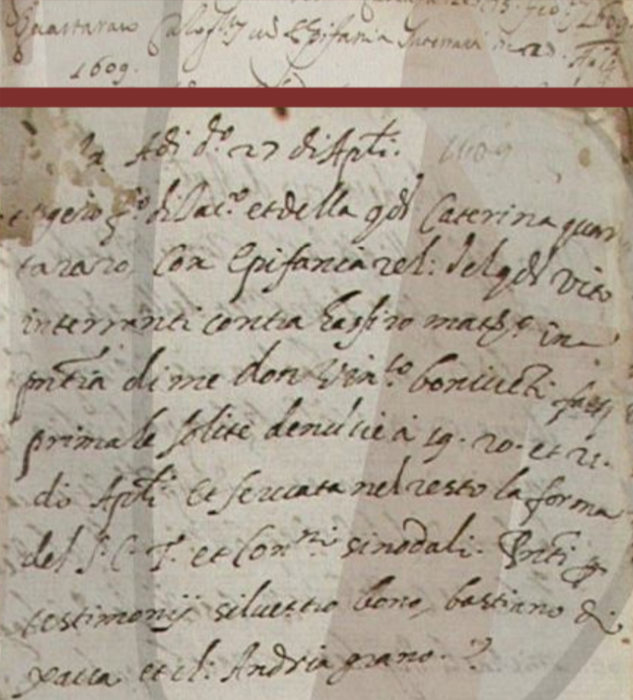 Quartararo Calog.º cu Epifania Interranti
1609.
Adi d.º 27 di Apli. 1609
f.º di Iac.º et della qdā Caterina quar
tararo, Con Epifania rel: del qdā vito
interranti contra hasſiro matg.º in
pntia di me don Vin.zo boniueti
prima le solite denūcie à 19. 20. et 21.
di Apli Et seruata nel resto la forma
del S. C. T. et Con.ni sinodali. Pnti p
testimonij siluestro bono, bastiano di
xacca et cl: Andria grano.